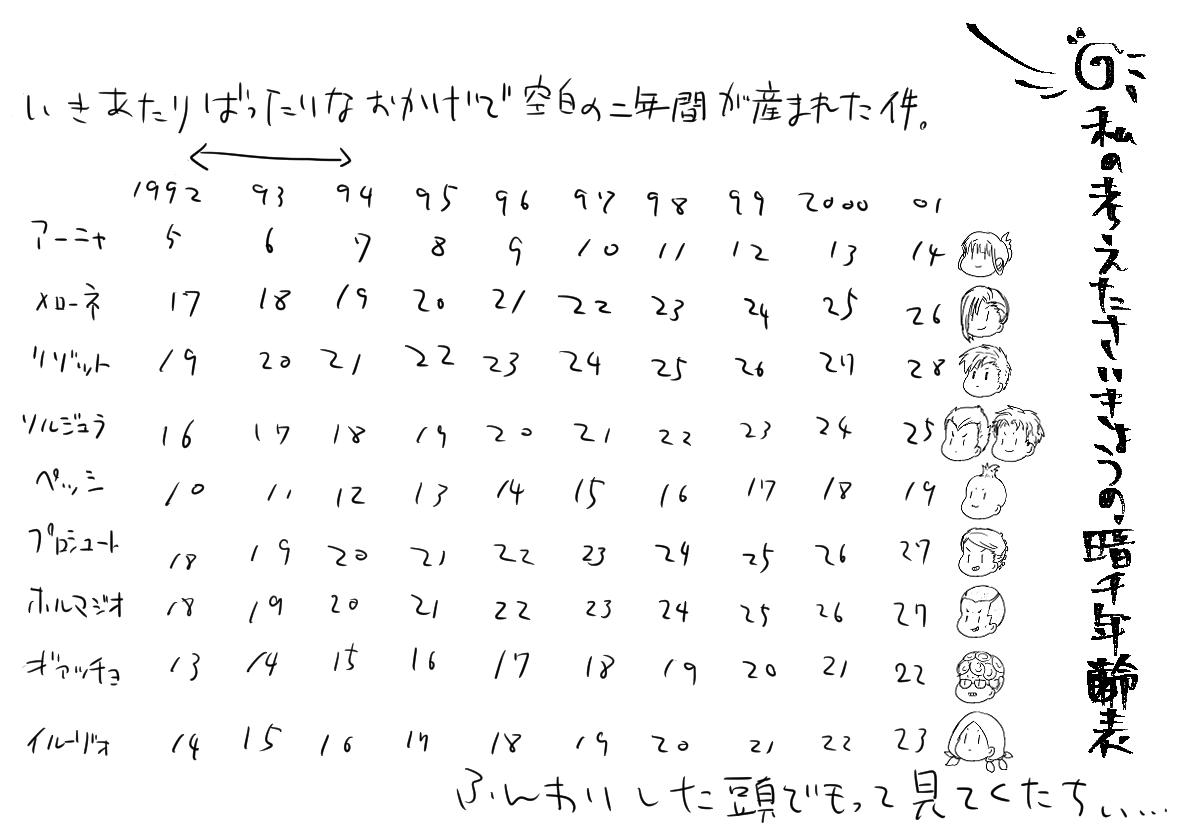 私の考えたさいきょうの暗チ年齢表
いきあたりばったりなおかげで空白の二年間が産まれた件。
1992 93 94 95 96 97 98 99 2000 01
アーニャ 5 6 7 8 9 10 11 12 13 14
メローネ 17 18 19 20 21 22 23 24 25 26
リゾット 19 20 21 22 23 24 25 26 27 28
ソルジェラ 16 17 18 19 20 21 22 23 24 25
ペッシ 10 11 12 13 14 15 16 17 18 19
プロシュート 18 19 20 21 22 23 24 25 26 27
ホルマジオ 18 19 20 21 22 23 24 25 26 27
ギアッチョ 13 14 15 16 17 18 19 20 21 22
イルーゾォ 14 15 16 17 18 19 20 21 22 23
ふんわりした頭でもって見てくだちぃ…